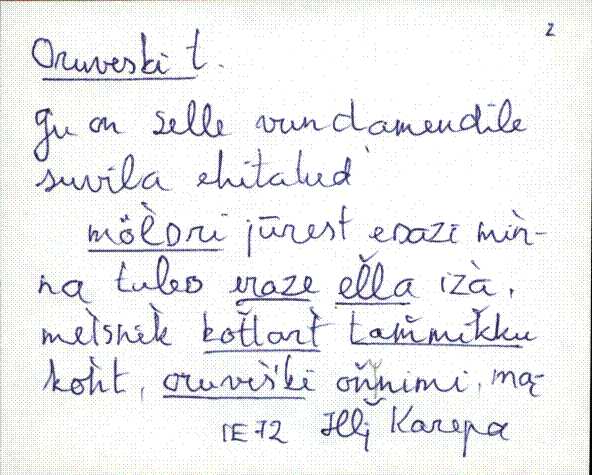 2
Oruveski t.
Gu on selle vundamendile
suvila ehitalud
möĺdri jūrest edazi mìn-
na tuleb eraze eĺla izà,
metsnik kotlart tam̆mikku
koht, oruviški oňnimi, mą-
IE72 Hlj Karepa